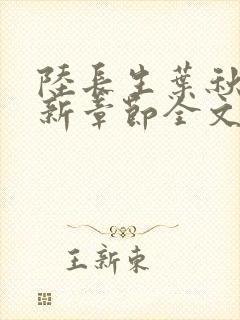 陸長生葉秋
新章節全文
王新東